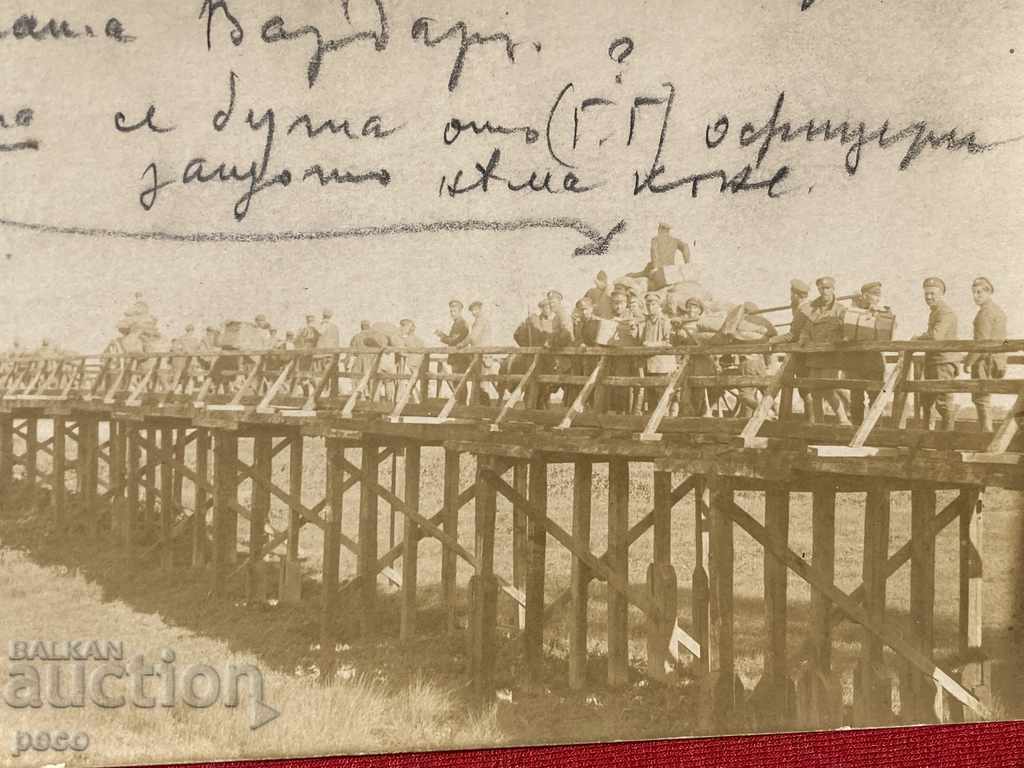 Вардаръ.
?
се бута отъ (Г.Г) офицери
защото нѣма коне.
BALKAN
auction
peco